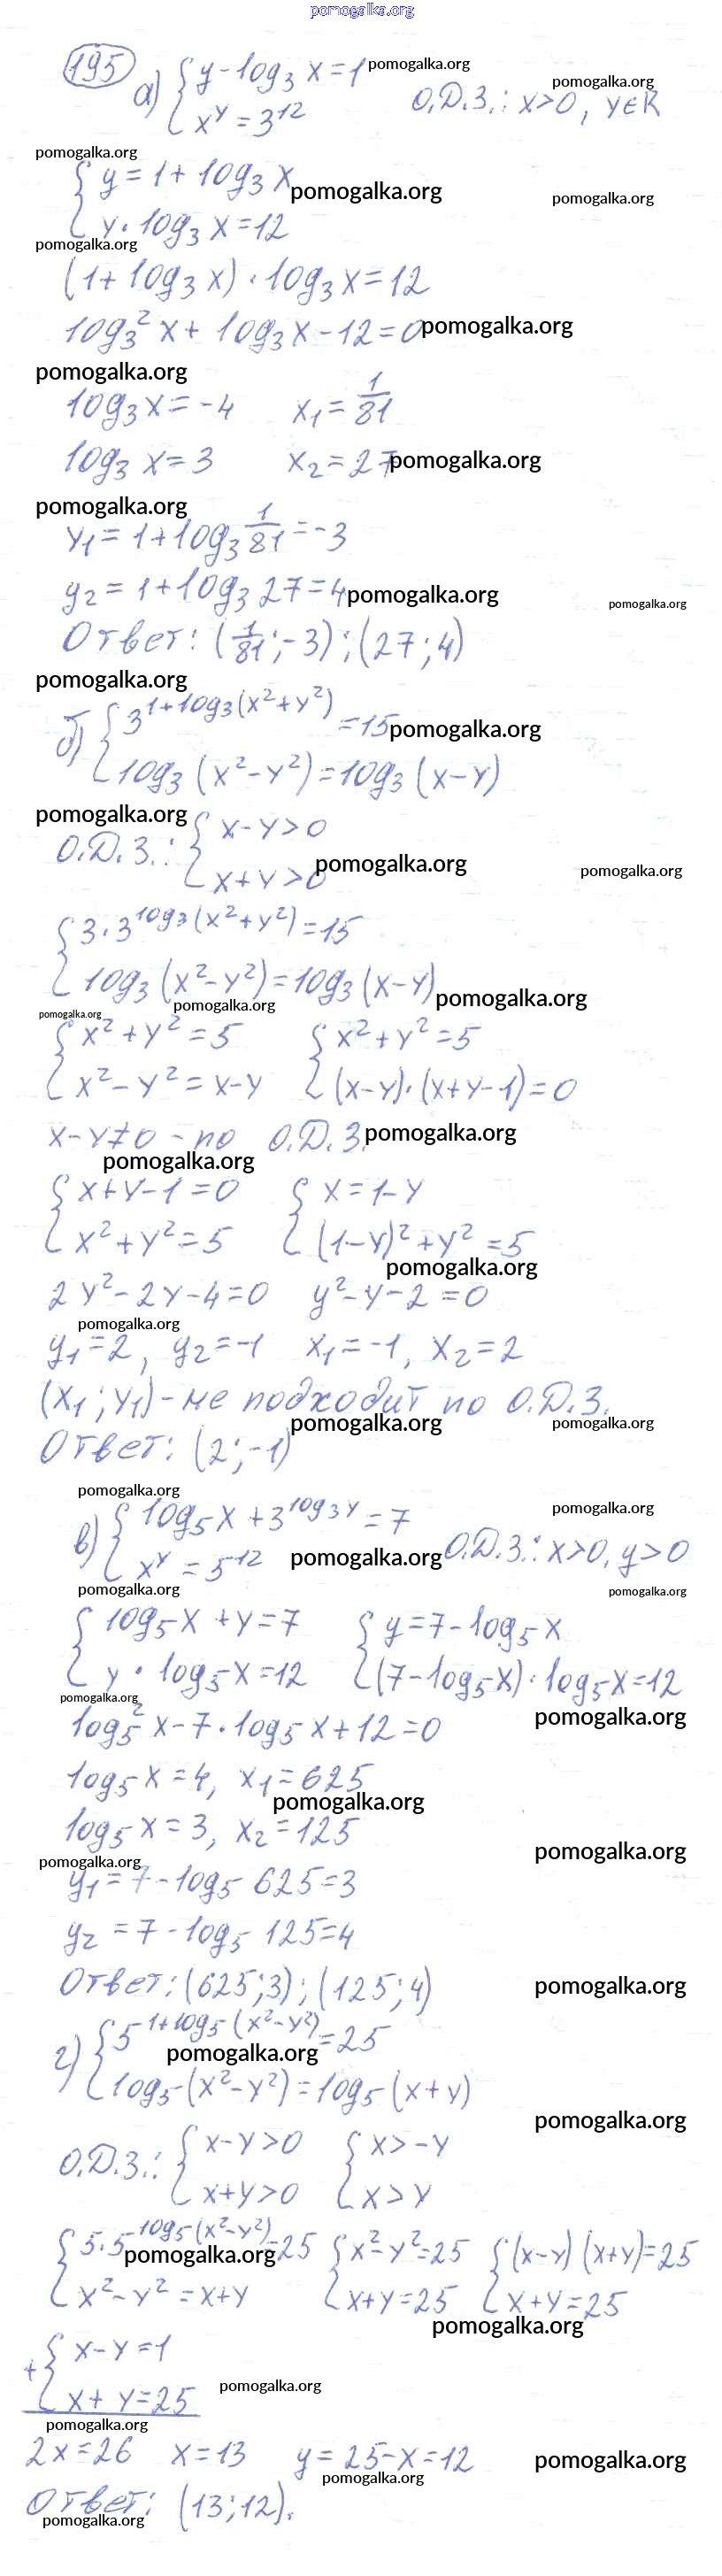 pomogalka.org
195 а) { y - log₃ x = 1 pomogalka.org
{ xʸ = 3¹² О.Д.З.: x>0, y∈R pomogalka.org
pomogalka.org
{ y = 1 + log₃ x pomogalka.org pomogalka.org
{ y · log₃ x = 12
pomogalka.org
(1 + log₃ x) · log₃ x = 12
log₃² x + log₃ x - 12 = 0 pomogalka.org
pomogalka.org
log₃ x = -4 x₁ = 1/81
log₃ x = 3 x₂ = 27 pomogalka.org
pomogalka.org
y₁ = 1 + log₃ 1/81 = -3
y₂ = 1 + log₃ 27 = 4 pomogalka.org pomogalka.org
Ответ: (1/81; -3); (27; 4)
pomogalka.org
б) { 3^(1+log₃(x²+y²)) = 15 pomogalka.org
{ log₃ (x²-y²) = log₃ (x-y)
pomogalka.org
О.Д.З.: { x-y>0
{ x+y>0 pomogalka.org pomogalka.org
{ 3·3^(log₃(x²+y²)) = 15
{ log₃ (x²-y²) = log₃ (x-y) pomogalka.org
pomogalka.org pomogalka.org
{ x²+y² = 5 { x²+y² = 5
{ x²-y² = x-y { (x-y)·(x+y-1) = 0
x-y≠0 - по О.Д.З. pomogalka.org
pomogalka.org
{ x+y-1 = 0 { x = 1-y
{ x²+y² = 5 { (1-y)²+y² = 5
pomogalka.org
2y²-2y-4 = 0 y²-y-2 = 0
pomogalka.org
y₁ = 2, y₂ = -1 x₁ = -1, x₂ = 2
(x₁; y₁) - не подходит по О.Д.З.
pomogalka.org pomogalka.org
Ответ: (2; -1)
pomogalka.org
в) { log₅ x + 3^(log₃ y) = 7 pomogalka.org
{ xʸ = 5¹² pomogalka.org О.Д.З.: x>0, y>0
pomogalka.org pomogalka.org
{ log₅ x + y = 7 { y = 7 - log₅ x
{ y · log₅ x = 12 { (7-log₅ x) · log₅ x = 12
pomogalka.org pomogalka.org
log₅² x - 7 · log₅ x + 12 = 0
log₅ x = 4, x₁ = 625
pomogalka.org
log₅ x = 3, x₂ = 125
pomogalka.org pomogalka.org
y₁ = 7 - log₅ 625 = 3
y₂ = 7 - log₅ 125 = 4
Ответ: (625; 3); (125; 4) pomogalka.org
г) { 5^(1+log₅(x²-y²)) = 25
pomogalka.org
{ log₅ (x²-y²) = log₅ (x+y)
pomogalka.org
О.Д.З.: { x-y>0 { x>-y
{ x+y>0 { x>y
{ 5·5^(log₅(x²-y²)) = 25 { x²-y² = 25 { (x-y)(x+y) = 25
pomogalka.org
{ x²-y² = x+y { x+y = 25 { x+y = 25
pomogalka.org
+ { x-y = 1
{ x+y = 25 pomogalka.org
pomogalka.org
2x = 26 x = 13 y = 25-x = 12 pomogalka.org
pomogalka.org
Ответ: (13; 12).
pomogalka.org